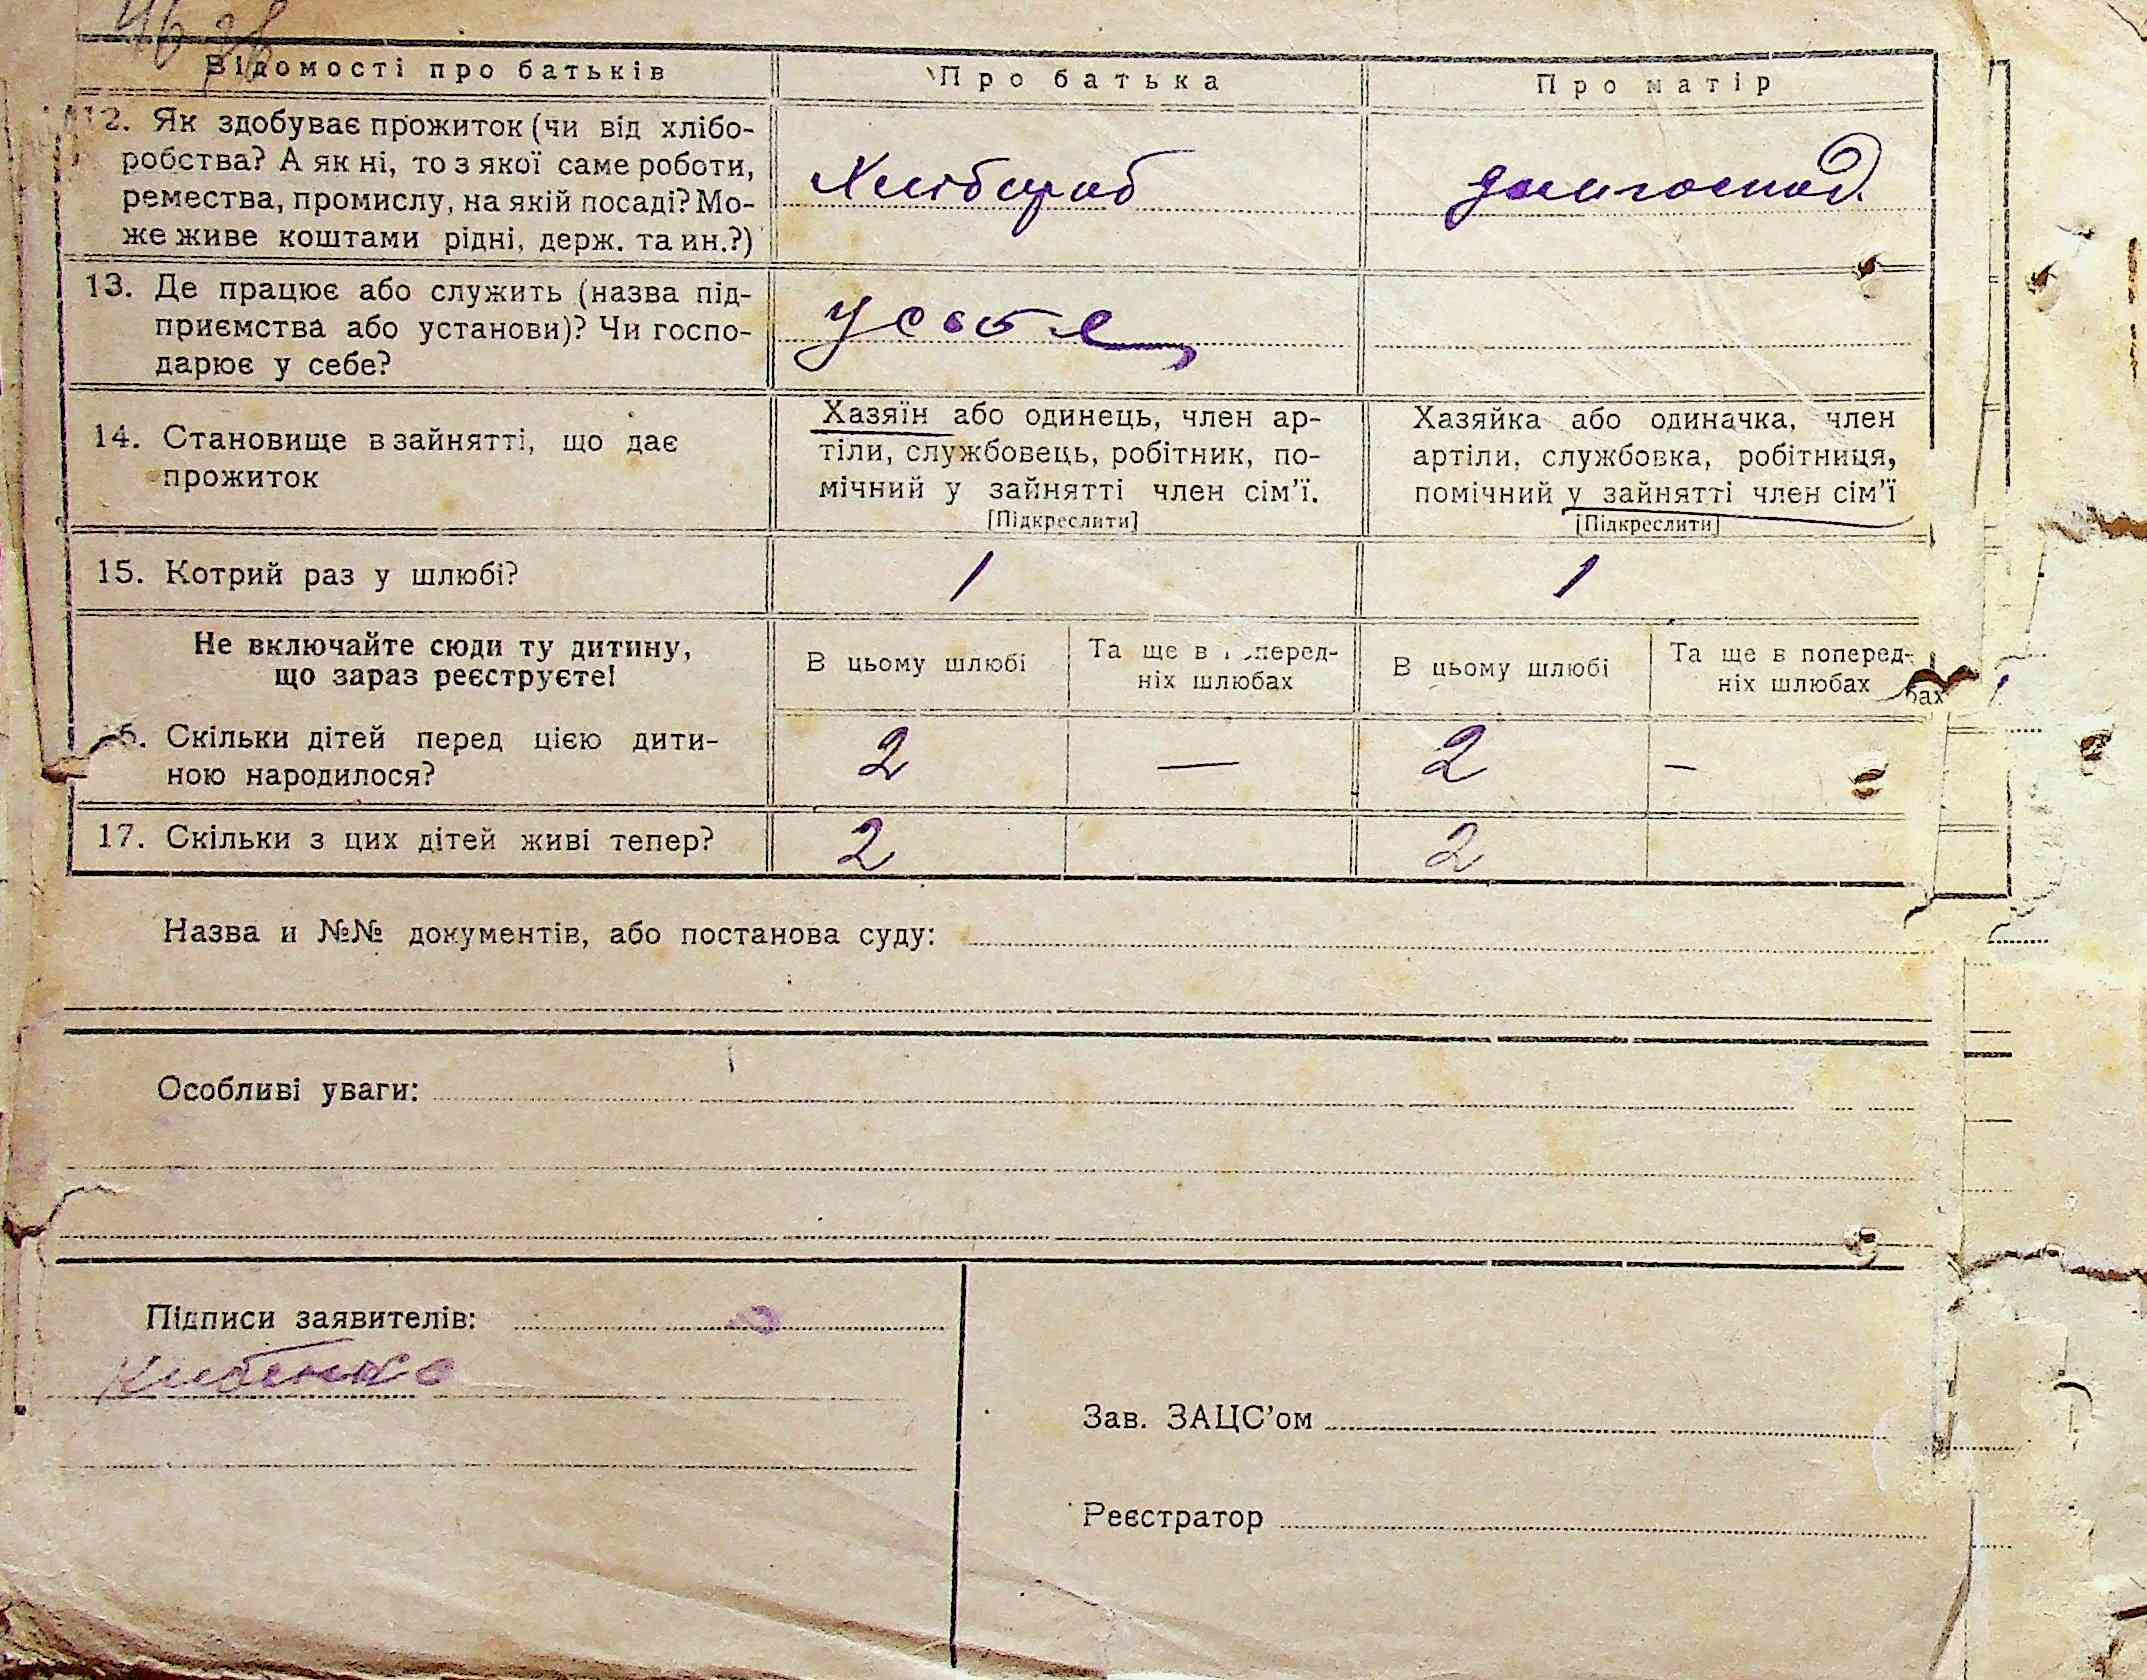 Відомості про батьків
Про батька
Про матір
12. Як здобуває прожиток (чи від хлібо-
робства? А як ні, то з якої саме роботи,
ремества, промислу, на якій посаді? Мо-
же живе коштами рідні, держ. та ин.?)
Хлібороб
домгоспод.
13. Де працює або служить (назва під-
приємства або установи)? Чи госпо-
дарює у себе?
у себе
14. Становище в зайнятті, що дає
прожиток
Хазяїн або одинець, член ар-
тіли, службовець, робітник, по-
мічний у зайнятті член сім'ї.
[Підкреслити]
Хазяйка або одиначка, член
артіли, службовка, робітниця,
помічний у зайнятті член сім'ї
[Підкреслити]
15. Котрий раз у шлюбі?
1
1
Не включайте сюди ту дитину,
що зараз реєструєте!
В цьому шлюбі
Та ще в перед-
ніх шлюбах
В цьому шлюбі
Та ще в поперед-
ніх шлюбах
бах
6. Скільки дітей перед цією дити-
ною народилося?
2 — 2 —
17. Скільки з цих дітей живі тепер?
2 2
Назва и №№ документів, або постанова суду:
Особливі уваги:
Підписи заявителів:
Зав. ЗАЦС'ом
Реєстратор